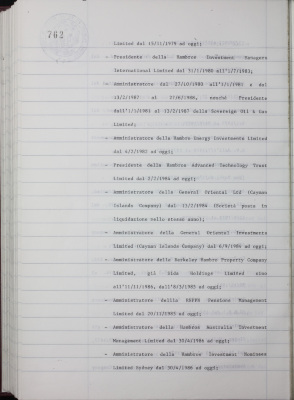 762
Limited dal 15/11/1979 ad oggi;
- Presidente della Hambros Investment Managers
International Limited dal 31/1/1980 all'1/7/1983;
- Amministratore dal 27/10/1980 all'1/1/1985 e dal
13/2/1987 al 27/8/1986, nonché Presidente
dall'1/1/1985 al 13/2/1987 della Sovereign Oil & Gas
Limited;
- Amministratore della Hambro Energy Investments Limited
dal 4/2/1982 ad oggi;
- Presidente della Hambros Advanced Technology Trust
Limited dal 2/2/1984 ad oggi;
- Amministratore della General Oriental Ltd (Cayman
Islands Company) dal 15/2/1984 (Società posta in
liquidazione nello stesso anno);
- Amministratore della General Oriental Investments
Limited (Cayman Islands Company) dal 6/9/1984 ad oggi;
- Amministratore della Berkeley Hambro Property Company
Limited, già Limited sino
all'11/11/1986, dall'8/5/1985 ad oggi;
- Amministratore della Pensions Management
Limited dal 29/11/1985 ad oggi;
- Amministratore della Hambros Australia Investment
Management Limited dal 30/4/1986 ad oggi;
- Amministratore della Hambros Investment Nominees
Limited Sydney dal 30/4/1986 ad oggi;